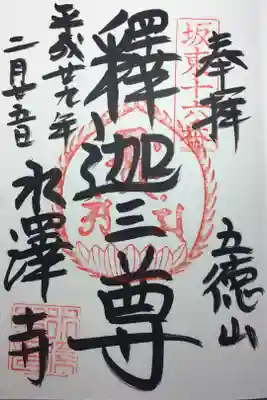 奉拝
坂東十六番
五徳山
釋迦三尊
平成廿九年
二月廿五日
水澤寺